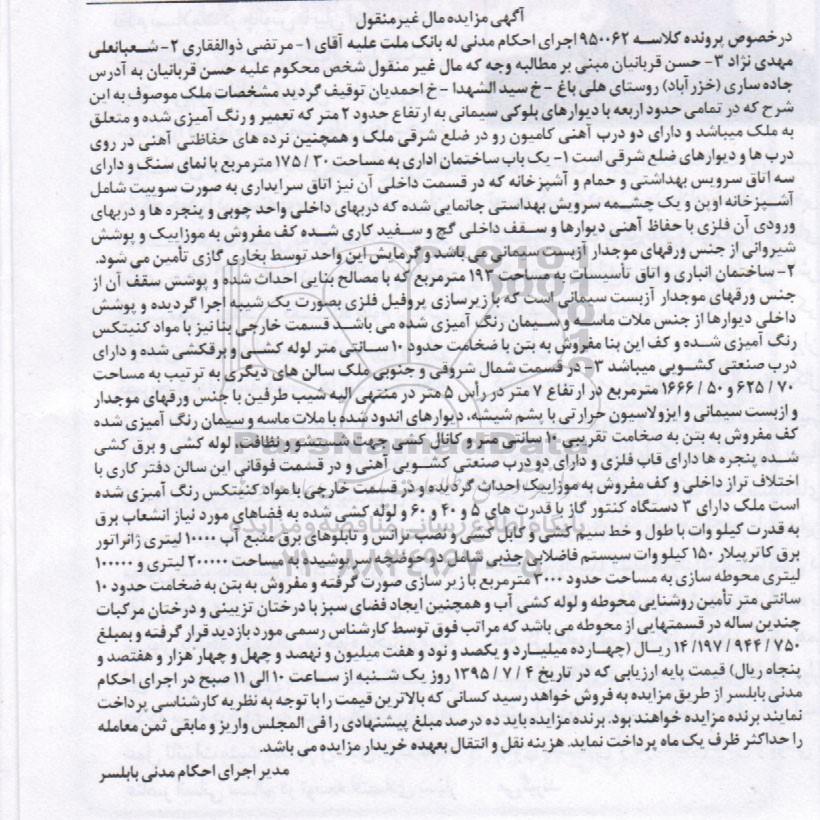 آگهی مزایده مال غیر منقول
در خصوص پرونده کلاسه ۹۵۰۰۶۲ اجرای احکام مدنی له بانک ملت علیه آقای ۱- مرتضی ذوالفقاری ۲- شعبانعلی
مهدی نژاد ۳- حسن قربانیان مبنی بر مطالبه وجه که مال غیر منقول شخص محکوم علیه حسن قربانیان به آدرس
جاده ساری (خزر آباد) روستای هلی باغ - خ سید الشهدا - خ احمدیان توقیف گردید مشخصات ملک موصوف به این
شرح که در تمامی حدود اربعه با دیوارهای بلوکی سیمانی به ارتفاع حدود ۲ متر که تعمیر و رنگ آمیزی شده و متعلق
به ملک میباشد و دارای دو درب آهنی کامیون رو در ضلع شرقی ملک و همچنین نرده های حفاظتی آهنی در روی
درب ها و دیوارهای ضلع شرقی است ۱- یک باب ساختمان اداری به مساحت ۳۰ / ۱۷۵ مترمربع با نمای سنگ و دارای
سه اتاق سرویس بهداشتی و حمام و آشپزخانه که در قسمت داخلی آن نیز اتاق سرایداری به صورت سوییت شامل
آشپزخانه اوپن و یک چشمه سرویش بهداستی جانمایی شده که دربهای داخلی واحد چوبی و پنجره ها و دربهای
ورودی آن فلزی با حفاظ آهنی دیوارها و سقف داخلی گچ و سفید کاری شده کف مفروش به موزاییک و پوشش
شیروانی از جنس ورقهای موجدار آزبست سیمانی می باشد و گرمایش این واحد توسط بخاری گازی تأمین می شود.
۲- ساختمان انباری و اتاق تأسیسات به مساحت ۱۹۳ مترمربع که با مصالح بنایی احداث شده و پوشش سقف آن از
جنس ورقهای موجدار آزبست سیمانی است که با زیرسازی پروفیل فلزی بصورت یک شیبه اجرا گردیده و پوشش
داخلی دیوارها از جنس ملات ماسه و سیمان رنگ آمیزی شده می باشد قسمت خارجی بنا نیز با مواد کنیتکس
رنگ آمیزی شده و کف این بنا مفروش به بتن با ضخامت حدود ۱۰ سانتی متر لوله کشی و برقکشی شده و دارای
درب صنعتی کشویی میباشد ۳- در قسمت شمال شروقی و جنوبی ملک سالن های دیگری به ترتیب به مساحت
۷۰ / ۶۲۵ و ۵۰ / ۱۶۶۶ مترمربع در ارتفاع ۷ متر در رأس ۵ متر در منتهی الیه شیب طرفین با جنس ورقهای موجدار
و ازبست سیمانی و ایزولاسیون حرارتی با پشم شیشه، دیوارهای اندود شده با ملات ماسه و سیمان رنگ آمیزی شده
کف مفروش به بتن به ضخامت تقریبی ۱۰ سانتی متر و کانال کشی جهت شستشو و نظافت لوله کشی و برق کشی
شده پنجره ها دارای قاب فلزی و دارای دو درب صنعتی کشویی آهنی و در قسمت فوقانی این سالن دفتر کاری با
اختلاف تراز داخلی و کف مفروش به موزاییک احداث گردیده و در قسمت خارجی با مواد کنیتکس رنگ آمیزی شده
است ملک دارای ۳ دستگاه کنتور گاز با قدرت های ۵ و ۴۰ و ۶۰ و لوله کشی شده به فضاهای مورد نیاز انشعاب برق
به قدرت کیلو وات با طول و خط سیم کشی و کابل کشی و نصب ترانس و تابلوهای برق منبع آب ۱۰۰۰۰ لیتری ژانراتور
برق کاترپیلار ۱۵۰ کیلو وات سیستم فاضلابی جذبی شامل دو حوضچه سرپوشیده به مساحت ۲۰۰۰۰۰ لیتری و ۱۰۰۰۰۰
لیتری محوطه سازی به مساحت حدود ۳۰۰۰ مترمربع با زیر سازی صورت گرفته و مفروش به بتن به ضخامت حدود ۱۰
سانتی متر تأمین روشنایی محوطه و لوله کشی آب و همچنین ایجاد فضای سبز با درختان تزیینی و درختان مرکبات
چندین ساله در قسمتهایی از محوطه می باشد که مراتب فوق توسط کارشناس رسمی مورد بازدید قرار گرفته و بمبلغ
۷۵۰ / ۹۴۴ / ۱۹۷ / ۱۴ ریال (چهارده میلیارد و یکصد و نود و هفت میلیون و نهصد و چهل و چهار هزار و هفتصد و
پنجاه ریال) قیمت پایه ارزیابی که در تاریخ ۴ / ۷ / ۱۳۹۵ روز یک شنبه از ساعت ۱۰ الی ۱۱ صبح در اجرای احکام
مدنی بابلسر از طریق مزایده به فروش خواهد رسید کسانی که بالاترین قیمت را با توجه به نظریه کارشناسی پرداخت
نمایند برنده مزایده خواهند بود. برنده مزایده باید ده درصد مبلغ پیشنهادی را فی المجلس واریز و مابقی ثمن معامله
را حداکثر ظرف یک ماه پرداخت نماید. هزینه نقل و انتقال بعهده خریدار مزایده می باشد.
مدیر اجرای احکام مدنی بابلسر
ParsNamadData
پایگاه اطلاع رسانی مناقصه و مزایده
۰۲۱-۸۸۳۴۹۶۷۰-۵